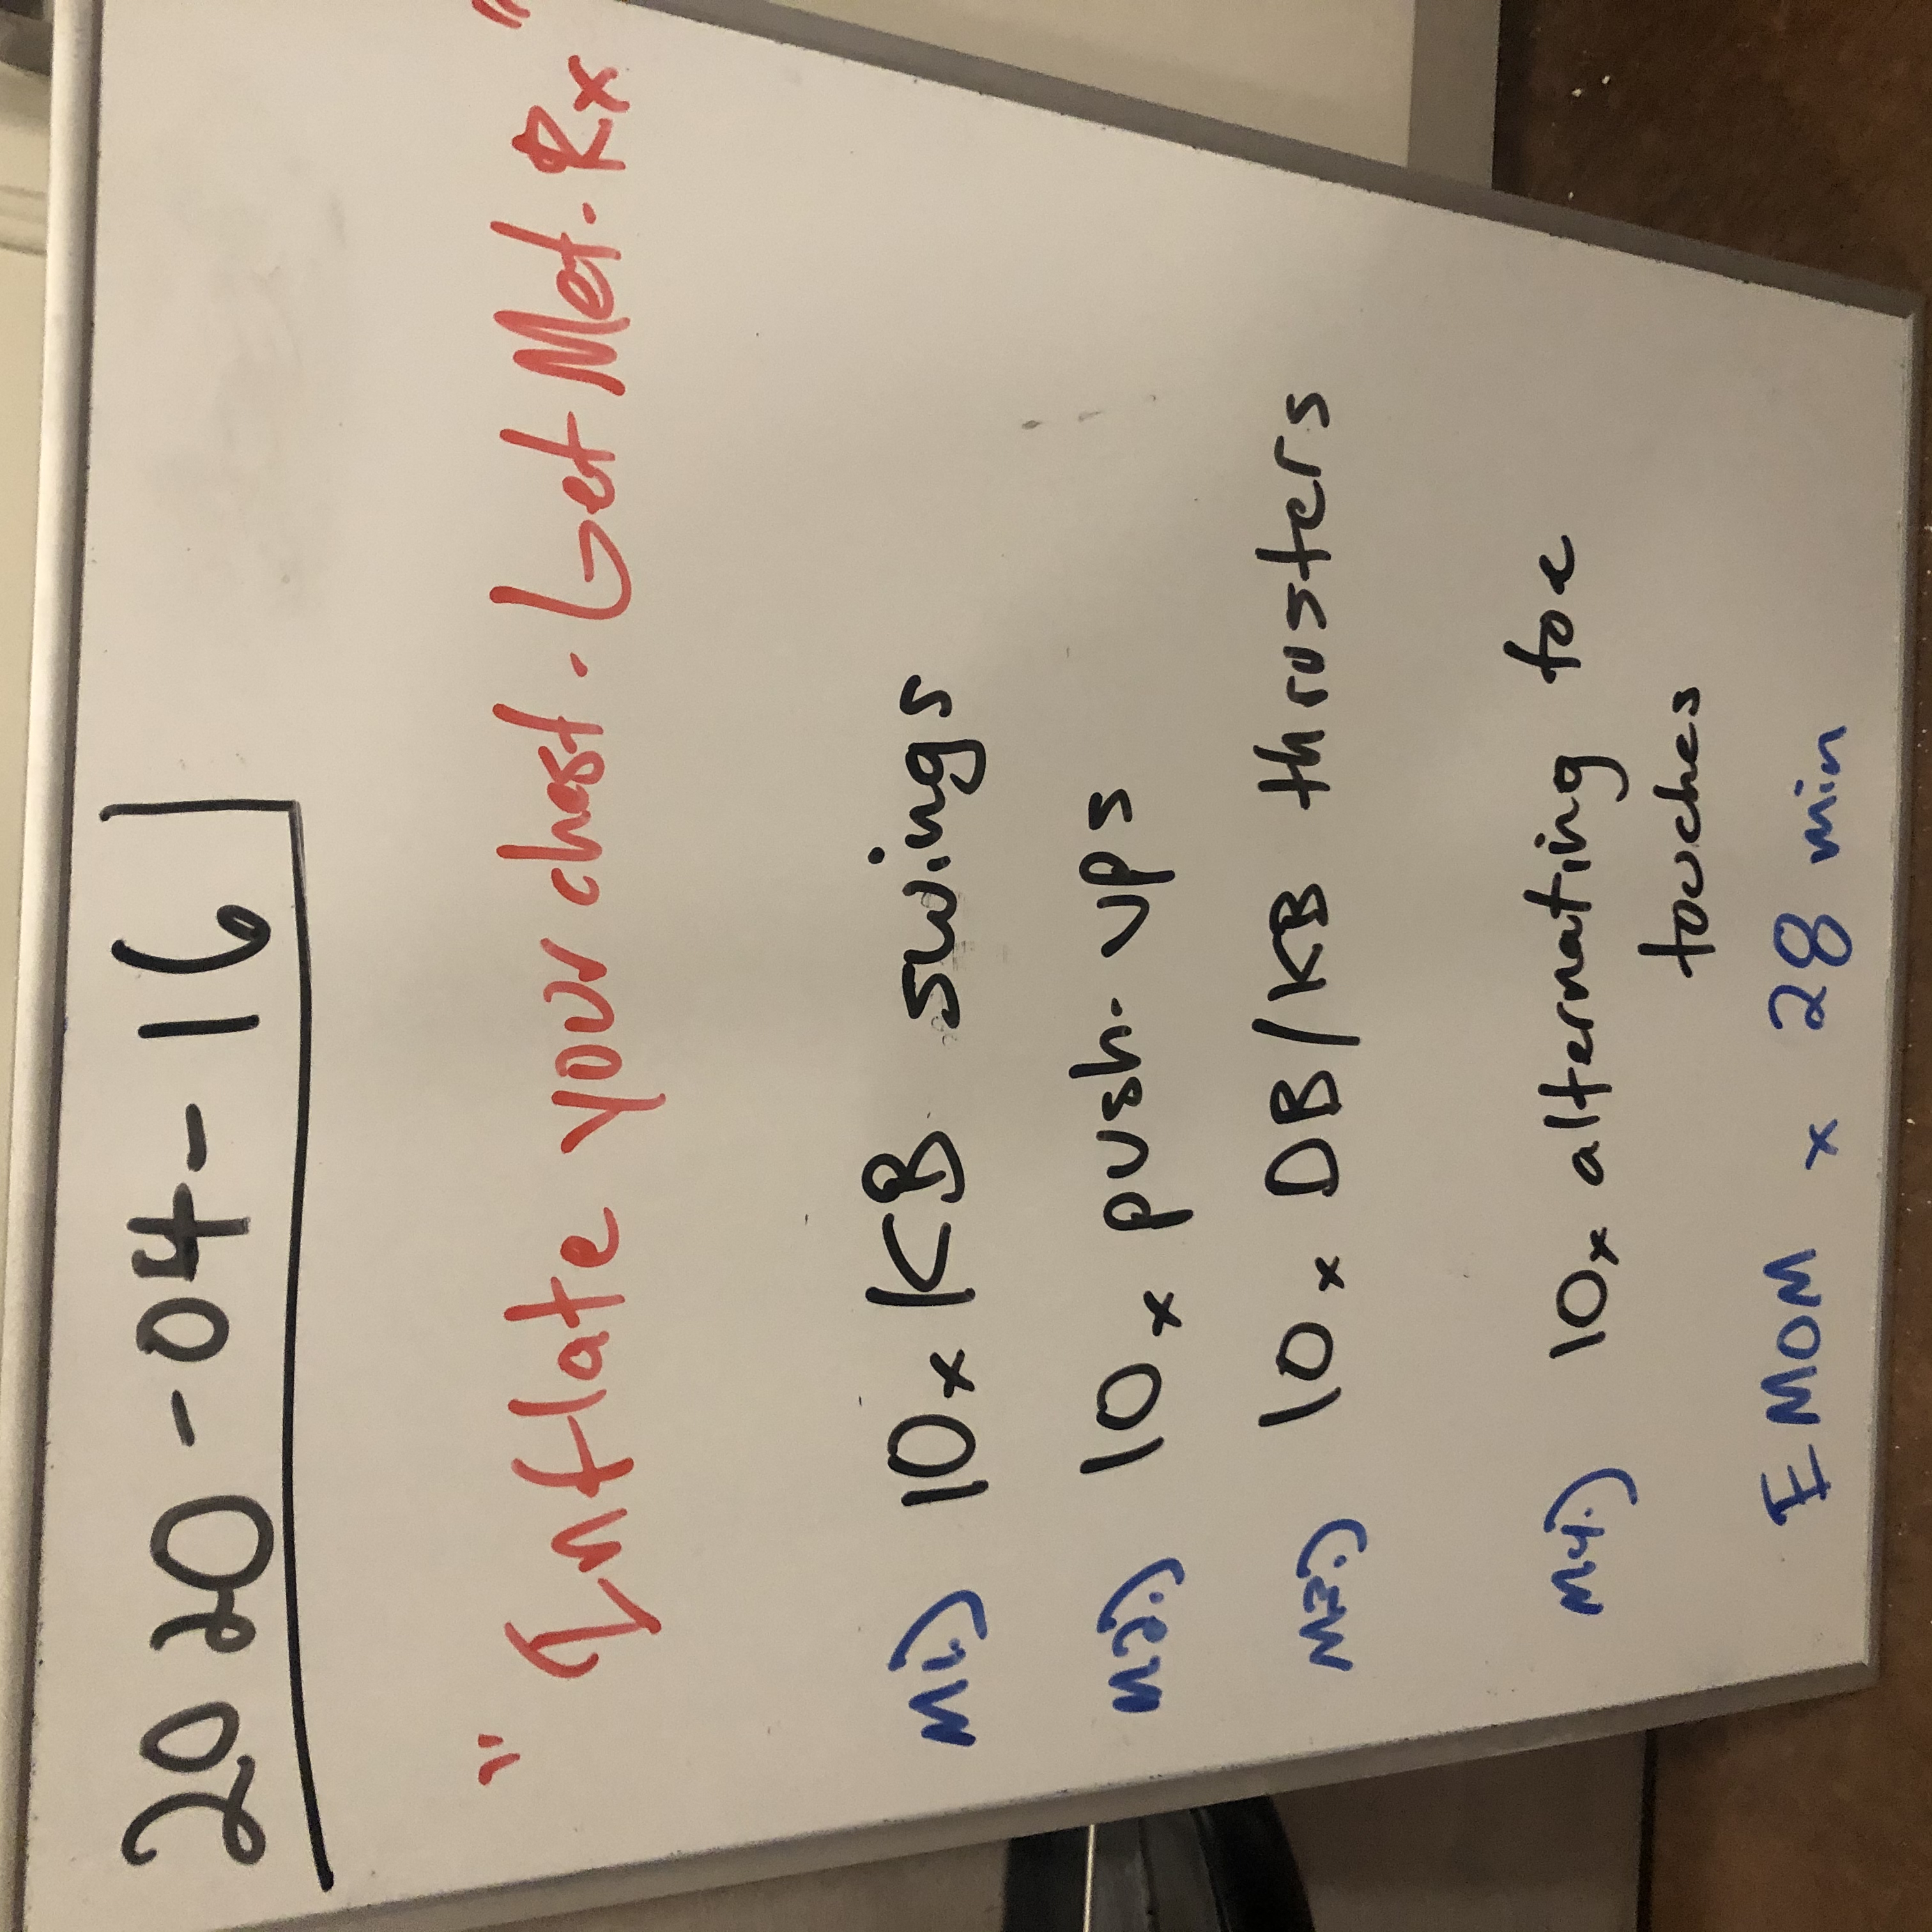 2020-04-16
"Inflate your chest. Get Met-Rx"
M1.) 10x KB swings
M2.) 10x push-ups
M3.) 10x DB/KB thrusters
M4.) 10x alternating toe
touches
EMOM x 28 min